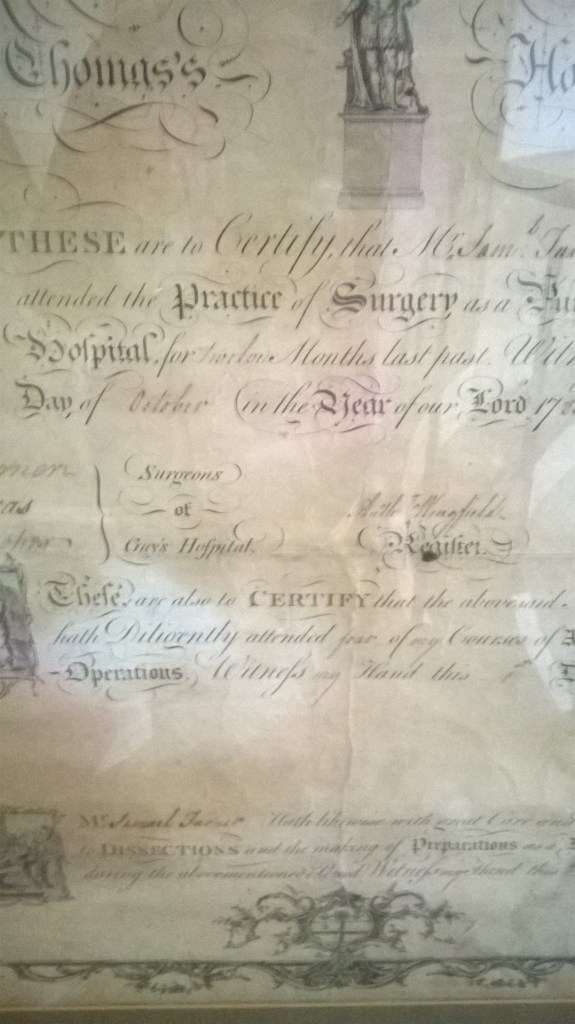 Thomas's Ho
THESE are to Certify, that Mr. Sam.l
attended the Practice of Surgery, as a Pu
Hospital, for twelve Months last past. Witn
Day, of October in the Year of our, Lord 17
Surgeons
of
Guy's Hospital.
Register.
These, are also to CERTIFY that the abovesaid
hath Diligently attended four of my Courses of
Operations. Witness my Hand this
Mr. Samuel Hath likewise with great Care and
to DISSECTIONS and the making of Preparations as a
during the abovementioned Witness my Hand this